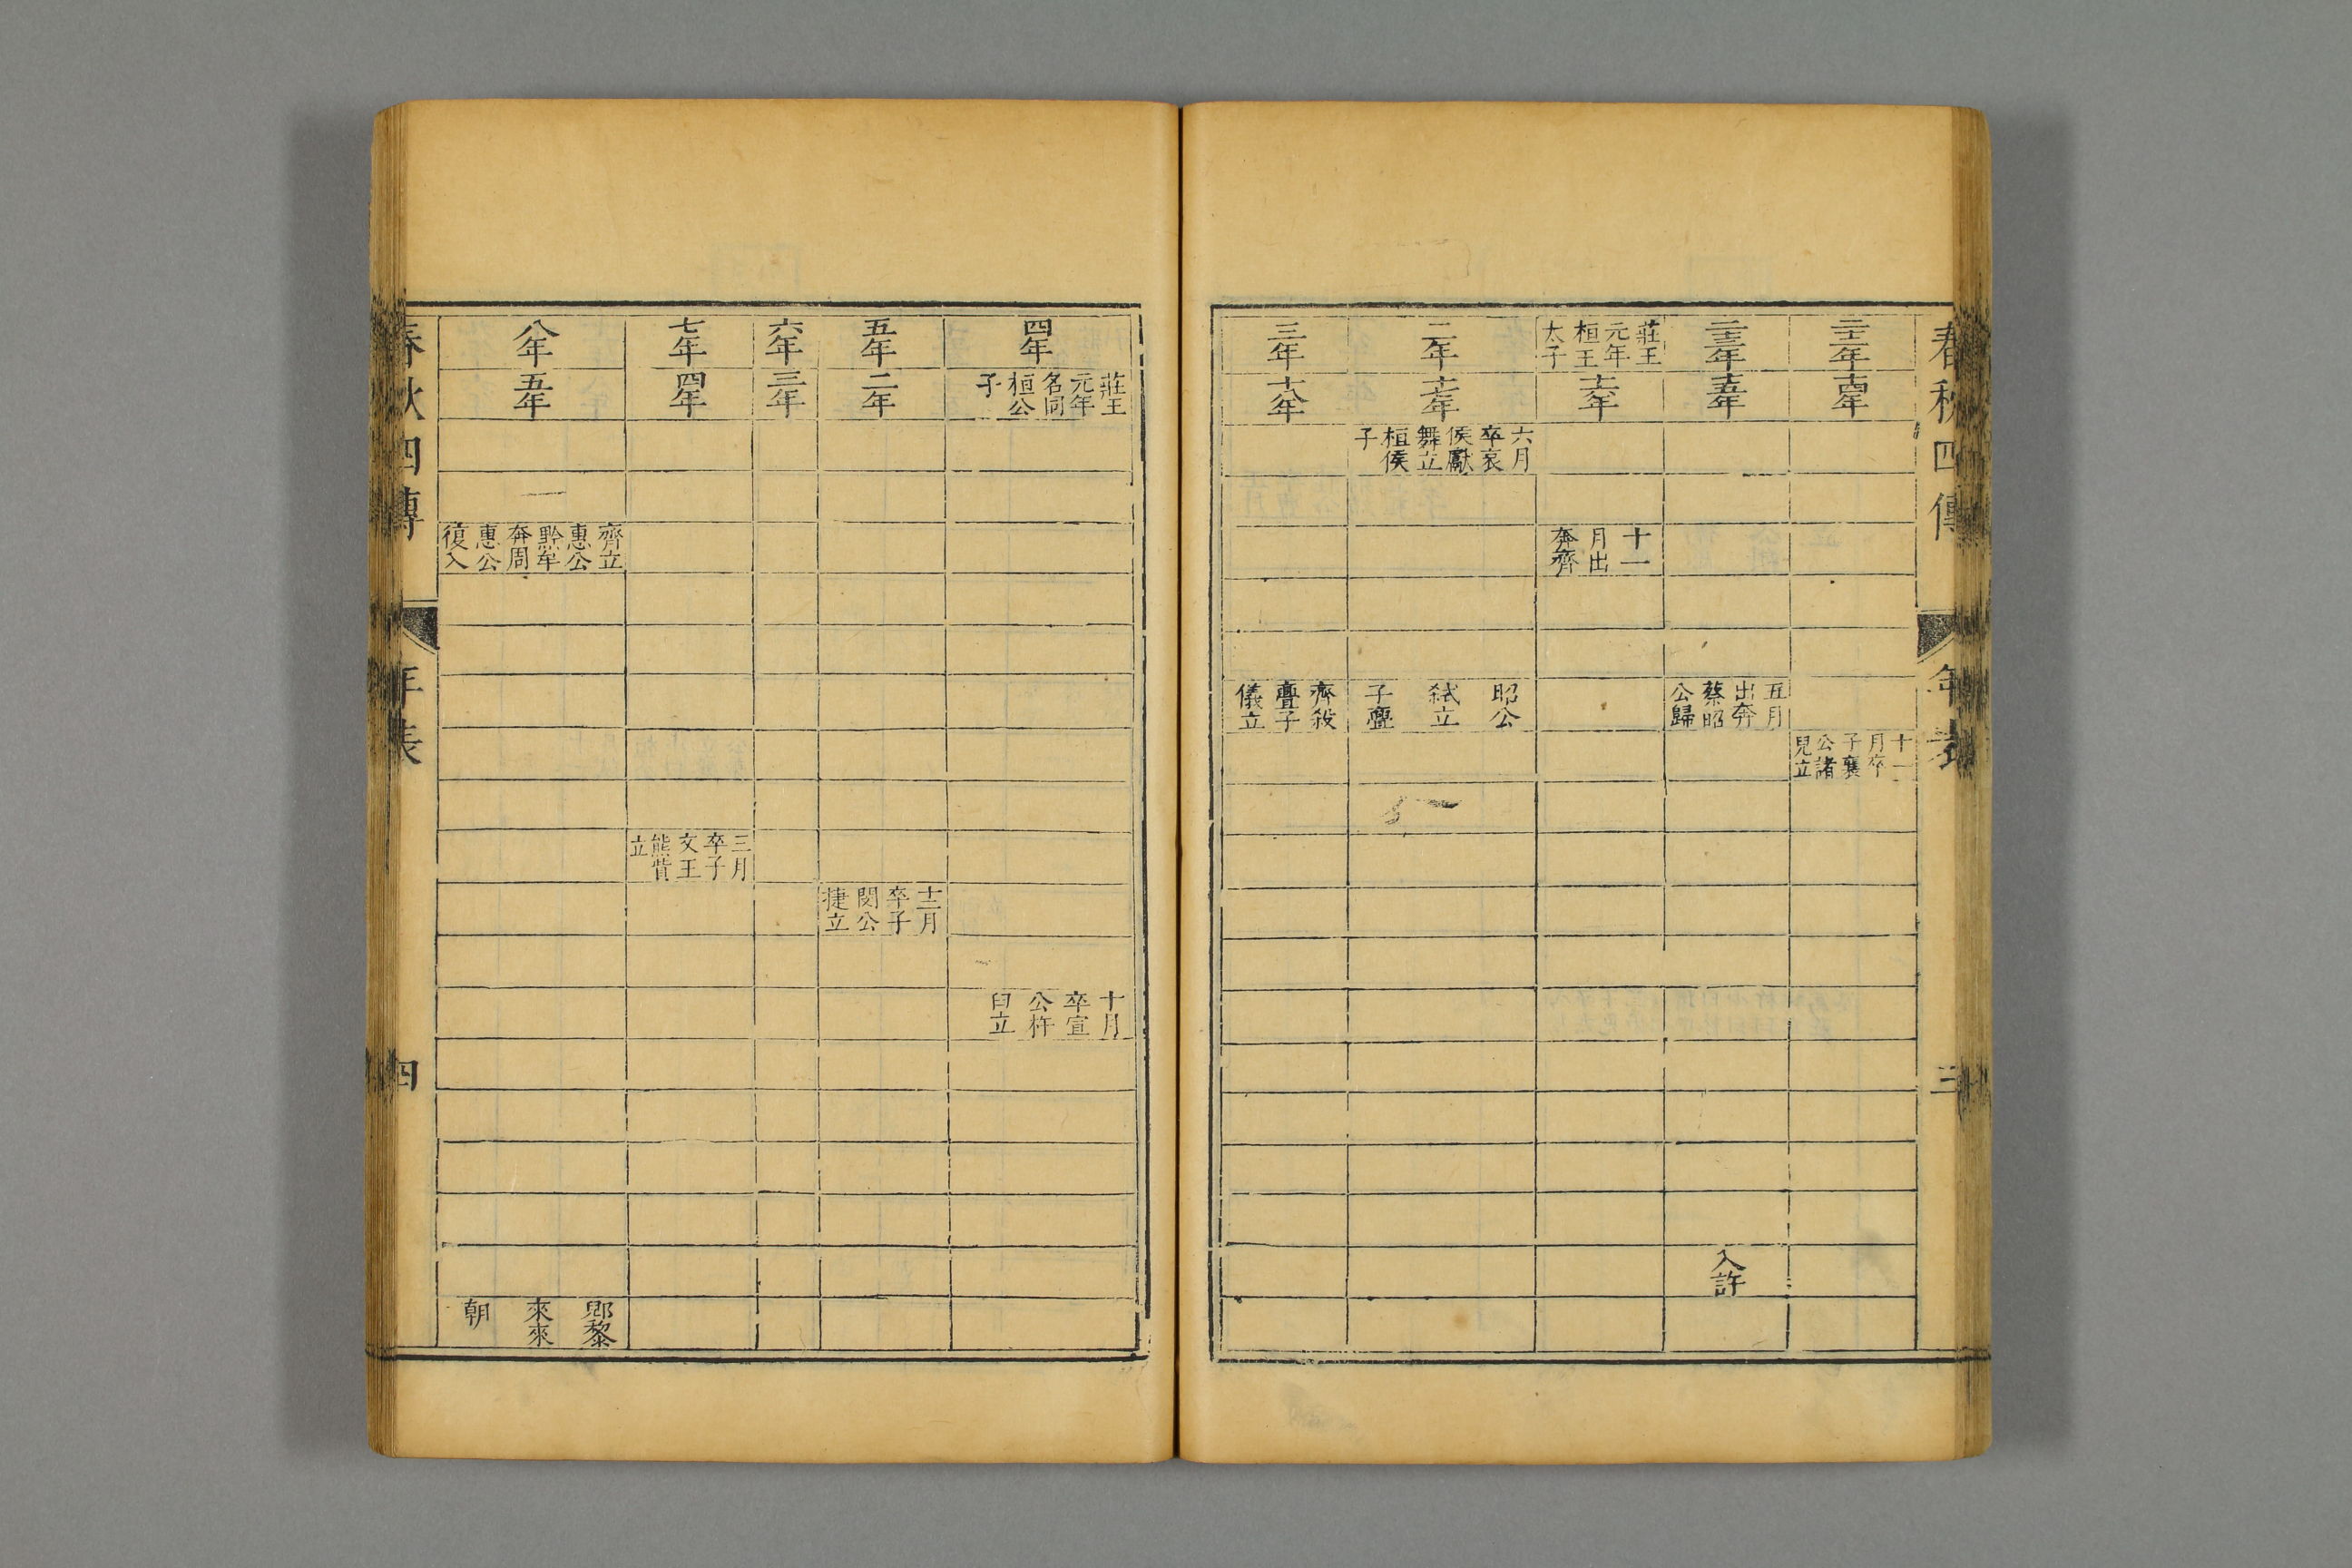 春秋四傳
年表
三
二十二年
十四年
十一
月卒
子襄
公諸
兒立
二十三年
十五年
五月
出奔
蔡昭
公歸
入許
莊王
元年
桓王
太子
十六年
十一
月出
奔齊
二年
十七年
六月
卒哀
侯獻
舞立
桓侯
子
昭公
弑立
子亹
三年
十八年
齊殺
亹子
儀立
四年
莊王
元年
名同
桓公
子
十月
卒宣
公杵
臼立
五年
二年
十二月
卒子
閔公
捷立
六年
三年
七年
四年
三月
卒子
文王
熊貲
立
八年
五年
齊立
惠公
黔牟
奔周
惠公
復入
郳黎
來來
朝
春秋四傳
年表
四